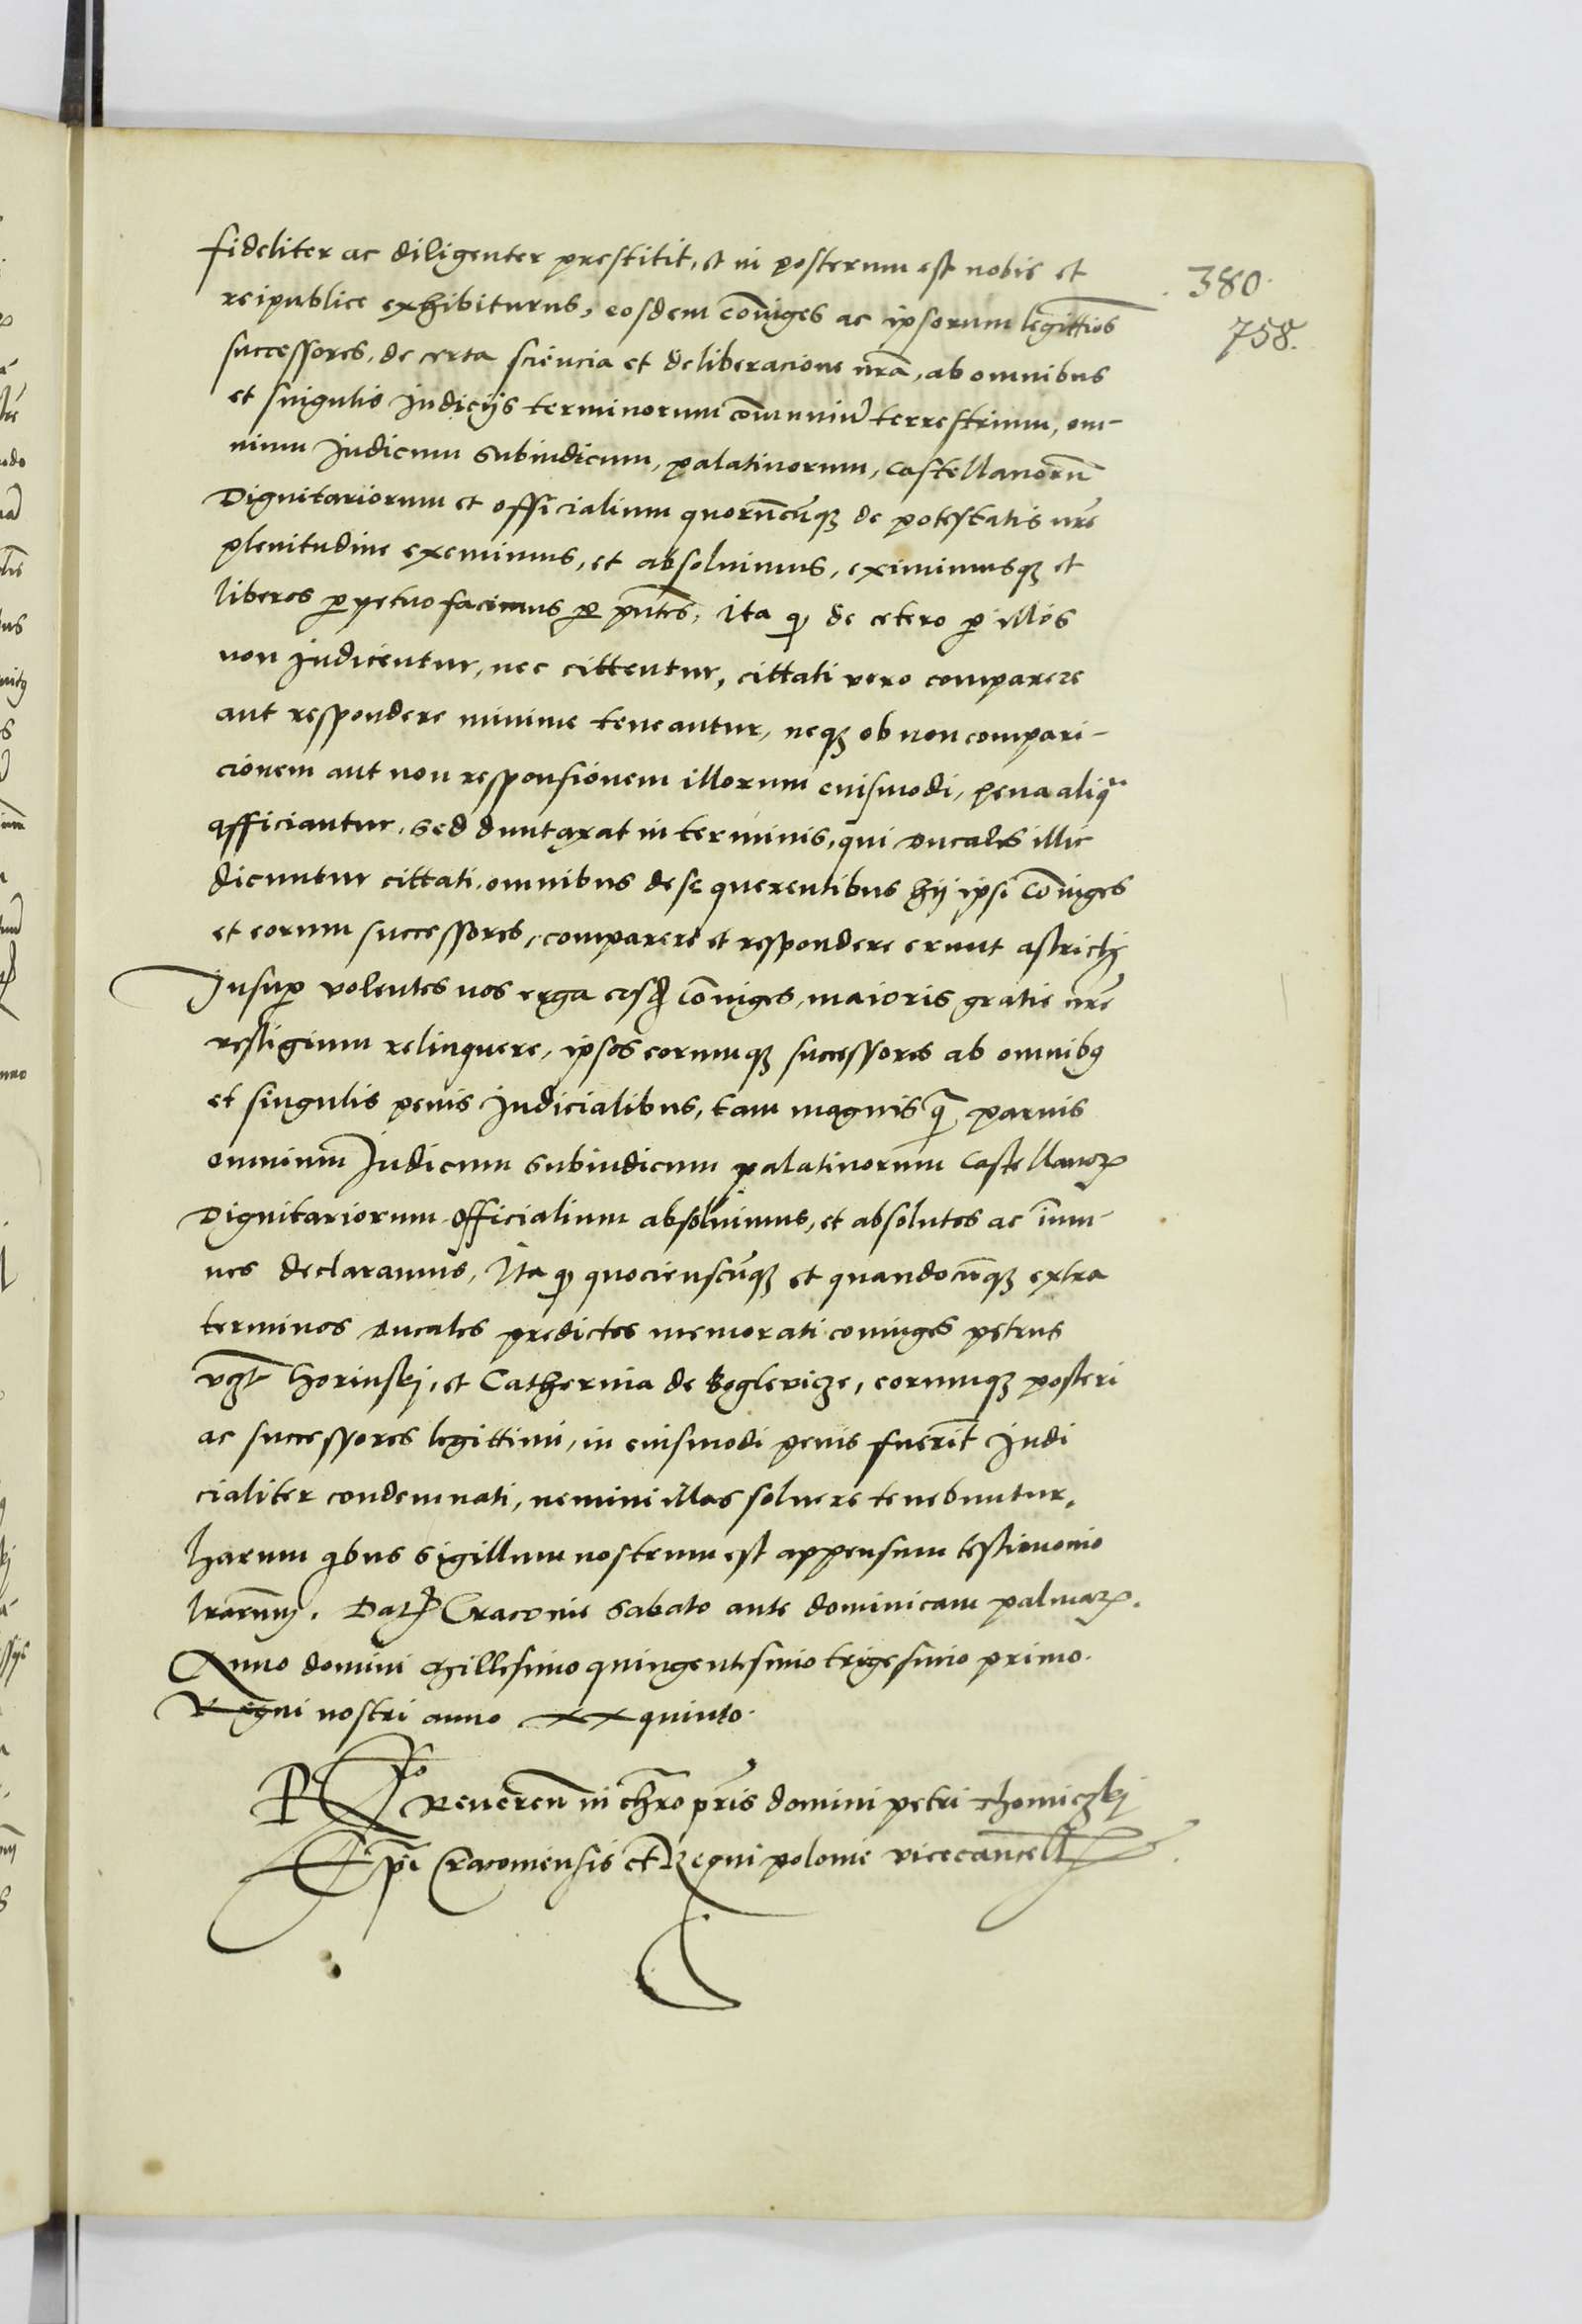 fideliter ac diligenter prestitit, et in posterum est nobis et
reipublice exhibiturus, eosdem coniuges ac ipsorum legittimos
successores, de certa sciencia et deliberacione nra, ab omnibus
et singulis Judicijs terminorum comuniu terrestrium, om-
nium Judicum Subiudicum, palatinorum, Castellanoru
Dignitariorum et officialium quorucuq de potestatis nre
plenitudine exemimus, et absoluimus, eximimusq et
liberos perpetuo facimus per pntes, Ita q de cetero per illos
non Judicentur, nec cittentur, cittati vero comparere
aut respondere minime teneantur, neq ob non compari-
cionem aut non responsionem illorum euismodi, pena aliqa
afficiantur, Sed duntaxat in terminis, qui Ducales illic
dicuntur cittati, omnibus de se querentibus hij ipsi Coniuges
et eorum successores, comparere et respondere erunt astricti
Insuper volentes nos erga eosd Coniuges, maioris gratie nre
vestigium relinquere, ipsos eorumq successores ab omnibus
et singulis penis Judicialibus, tam magnis q paruis
omnium Judicum Subiudicum palatinorum Castellanor
Dignitariorum officialium absoluimus, et absolutos ac imu-
nes declaramus, Ita q quocienscuq et quandocuq extra
terminos Ducales predictos memorati coniuges petrus
vgt horinskj, et Catherina de Boglevicze, eorumq posteri
ac successores legittimi, in euismodi penis fuerit Judi
cialiter condemnati, nemini illas soluere tenebuntur,
harum qbus Sigillum nostrum est appensum testimonio
lrarum. Dat Cracouie Sabato ante dominicam palmar.
Anno domini Millesimo quingentesimo trigesimo primo.
Regni nostri anno XX quinto.
Ro Reueren in chro pris domini petri thomiczkj
Epi Cracouiensis et Regni polonie vicecancell
380.
758.